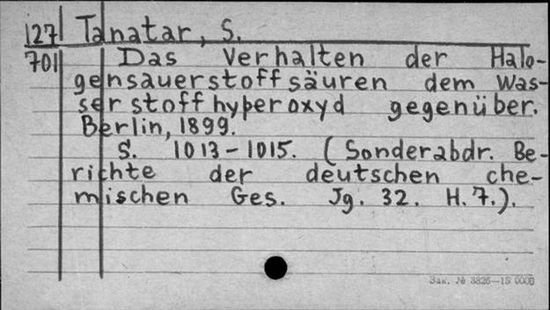 127 Tanatar, S.
701 Das Verhalten der Halo-
gensauerstoffsäuren dem Was-
serstoffhyperoxyd gegenüber.
Berlin, 1899.
S. 1013-1015. (Sonderabdr. Be-
richte der deutschen che-
mischen Ges. Jg. 32. H. 7.).
Зак. № 3826—15 0000